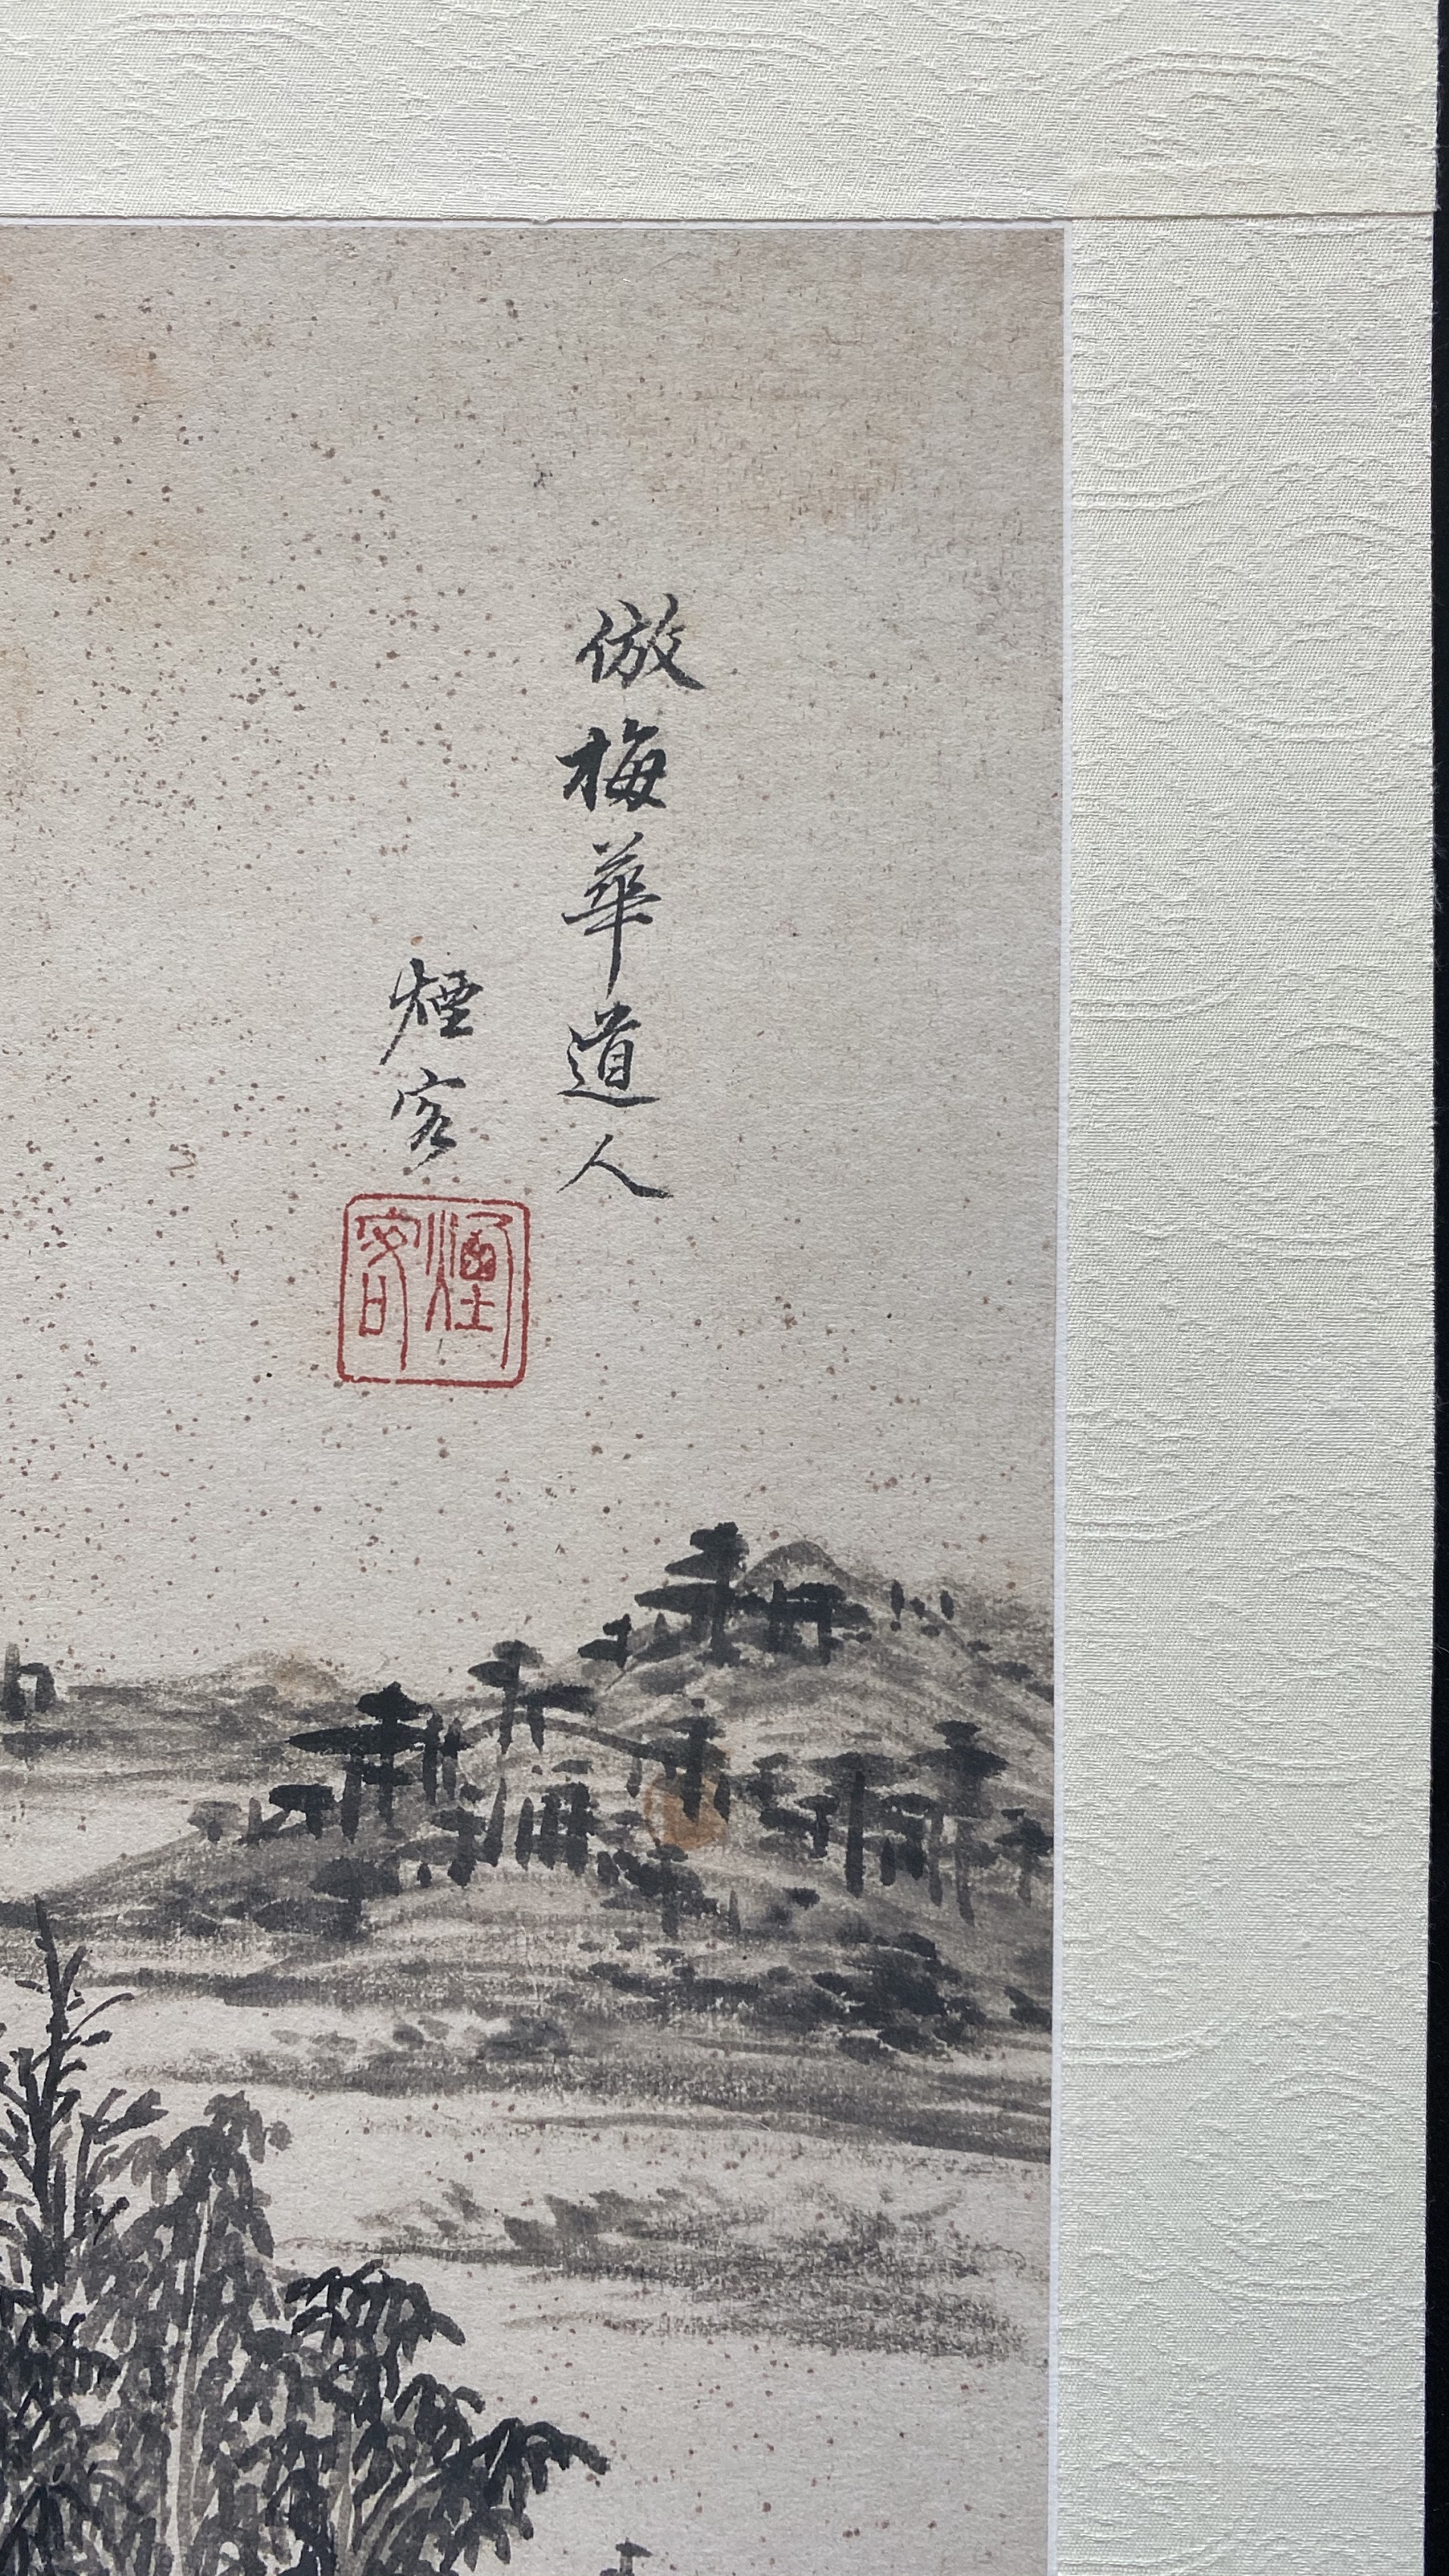 倣梅華道人
煙客
煙客